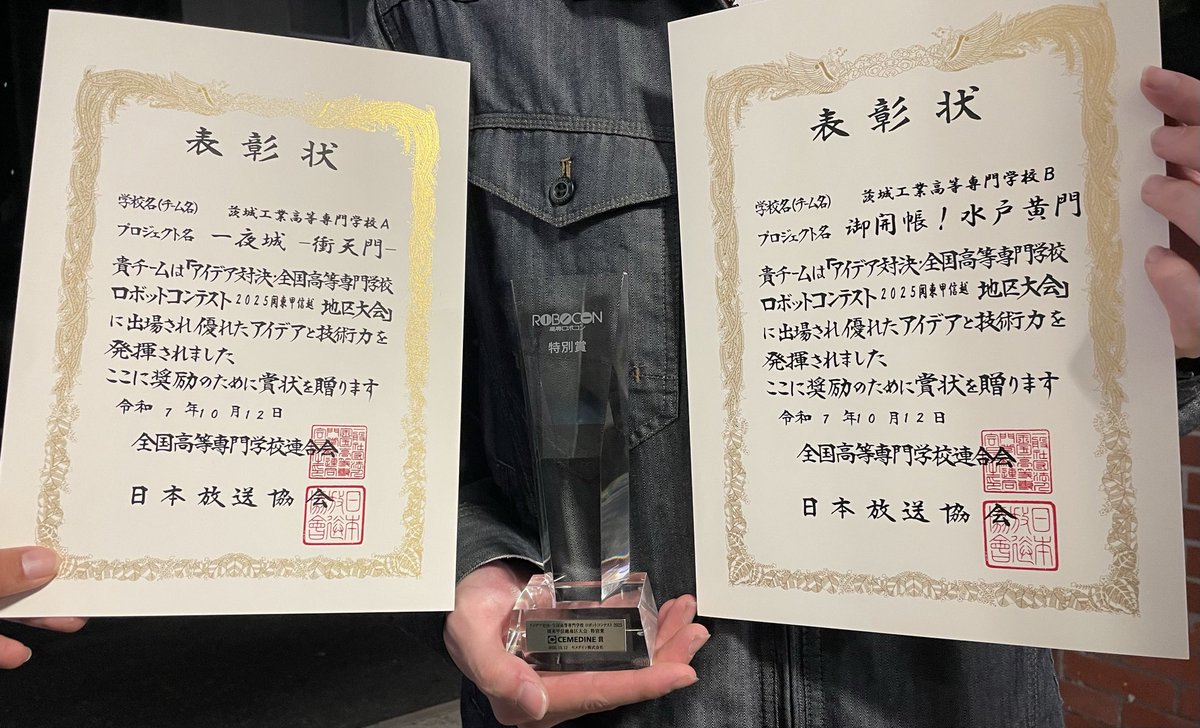 表彰状
学校名(チーム名) 茨城工業高等専門学校A
プロジェクト名 一夜城 -衝天門-
貴チームは「アイデア対決・全国高等専門学校
ロボットコンテスト2025関東甲信越 地区大会」
に出場され優れたアイデアと技術力を
発揮されました
ここに奨励のために賞状を贈ります
令和 7 年10 月12 日
全国高等専門学校連合会
日本放送協会
日本放送協會
ROBOCON
高専ロボコン
特別賞
アイデア対決・全国高等専門学校 ロボットコンテスト 2025
関東甲信越地区大会 特別賞
CEMEDINE 賞
2025.10.12 セメダイン株式会社
表彰状
学校名(チーム名) 茨城工業高等専門学校B
プロジェクト名 御開帳!水戸黄門
貴チームは「アイデア対決・全国高等専門学校
ロボットコンテスト2025関東甲信越 地区大会」
に出場され優れたアイデアと技術力を
発揮されました
ここに奨励のために賞状を贈ります
令和 7 年10 月12 日
全国高等専門学校連合会
日本放送協会
日本放送協會